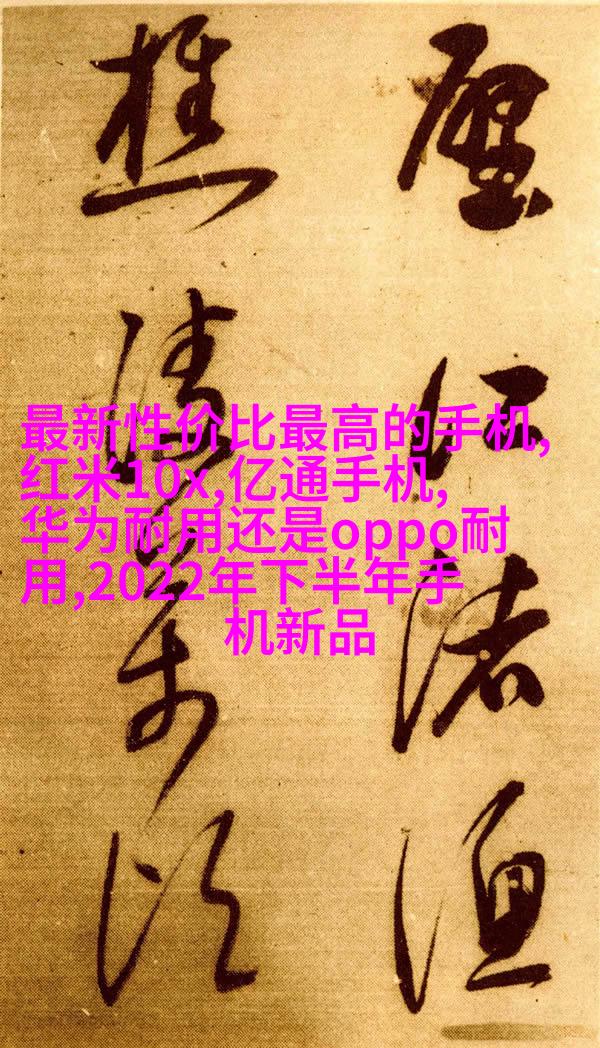 江渚漁
樵清
最新性价比最高的手机,
红米10x,亿通手机,
华为耐用还是oppo耐
用,2022年下半年手
机新品